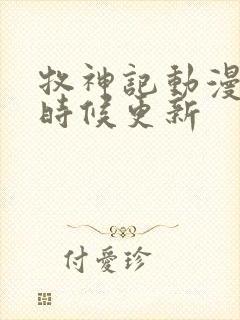 牧神記動漫
時候更新
付愛珍